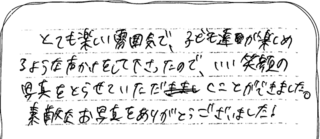 とても楽しい雰囲気で、子ども達が楽しめ
るような声かけをして下さったので、いい笑顔の
写真をとらせていただくことができました。
素敵なお写真をありがとうございました!